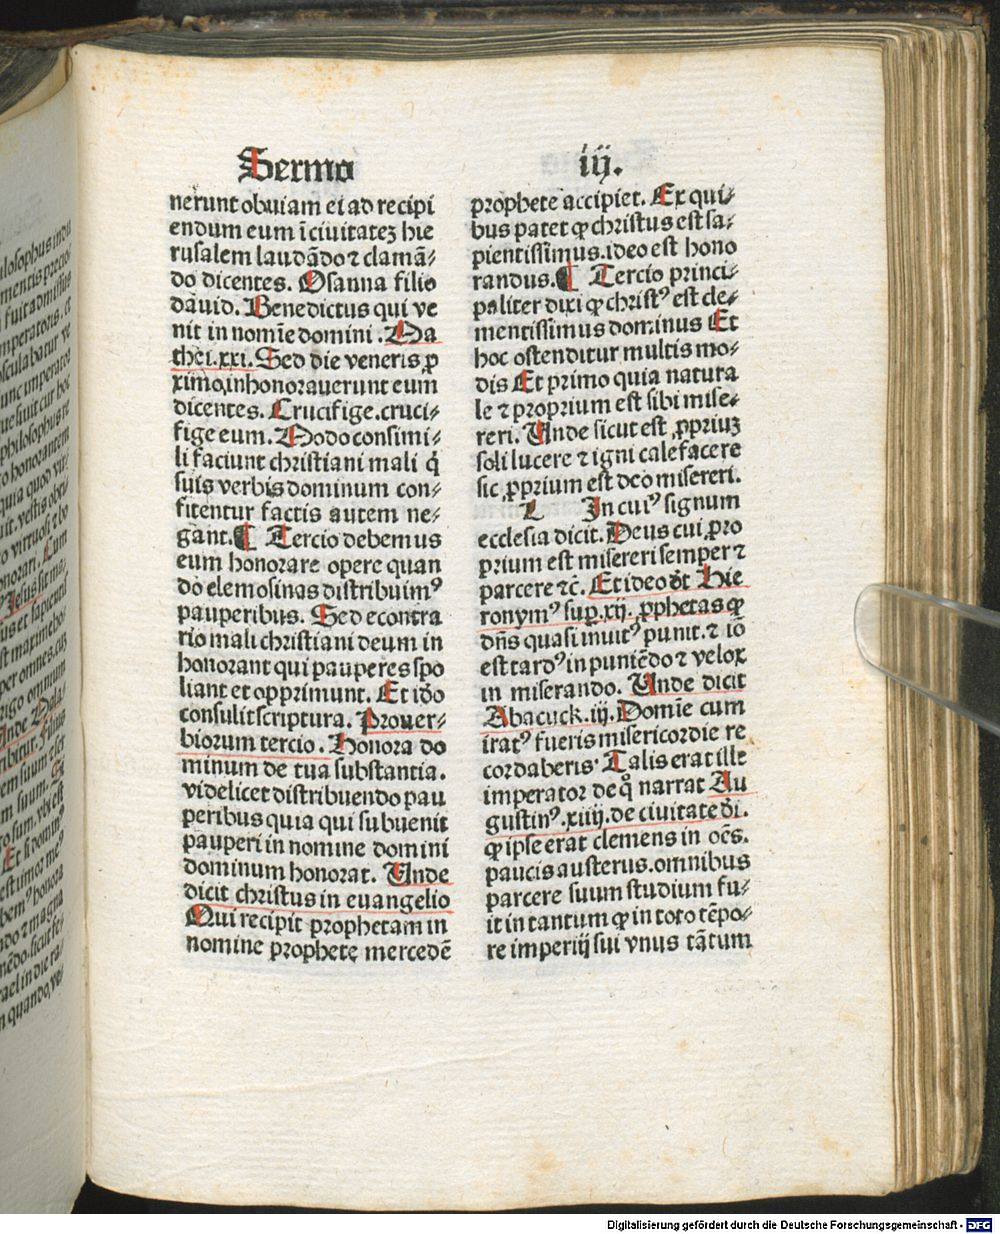 Sermo iij.
nerunt obuiam ei ad recipi
endum eum ī ciuitatez hie
rusalem laudādo ⁊ clamā⸗
do dicentes. Osanna filio
dauid. Benedictus qui ve
nit in nomīe domini. Ma
thei.xxi. Sed die veneris ꝓ
ximo,inhonorauerunt eum
dicentes. Crucifige.cruci⸗
fige eum. Modo consimi⸗
li faciunt christiani mali q̇
suis verbis dominum con⸗
fitentur factis autem ne⸗
gant. ¶ Tercio debemus
eum honorare opere quan
do elemosinas distribuimꝰ
pauperibus. Sed econtra
rio mali christiani deum in
honorant qui pauperes spo
liant et opprimunt. Et iđo
consulit scriptura. Prouer⸗
biorum tercio. Honora do
minum de tua substantia.
videlicet distribuendo pau
peribus quia qui subuenit
pauperi in nomine domini
dominum honorat. Unde
dicit christus in euangelio
Qui recipit prophetam in
nomine prophete mercedē
prophete accipiet. Ex qui⸗
bus patet ꝙ christus est sa⸗
pientissimus.ideo est hono
randus. ¶ Tercio princi⸗
paliter dixi ꝙ christꝰ est cle⸗
mentissimus dominus Et
hoc ostenditur multis mo⸗
dis Et primo quia natura
le ⁊ proprium est sibi mise⸗
reri. Unde sicut est ꝓpriuz
soli lucere ⁊ igni calefacere
sic ꝓprium est deo misereri.
In cuiꝰ signum
ecclesia dicit. Deus cui pro
prium est misereri semper ⁊
parcere ⁊c. Et ideo dt̄ Hie
ronymꝰ sup̱.xij. ꝓphetas ꝙ
dn̄s quasi inuitꝰ punit.⁊ iō
est tardꝰ in puniēdo ⁊ velox
in miserando. Unde dicit
Abacuck.iij. Domīe cum
iratꝰ fueris misericordie re
cordaberis. Talis erat ille
imperator de qͦ narrat Au
gustinꝰ.xiiij.de ciuitate dī.
ꝙ ipse erat clemens in oēs.
paucis austerus.omnibus
parcere suum studium fu⸗
it in tantum ꝙ in toto tēpo⸗
re imperij sui vnus tātum
Digitalisierung gefördert durch die Deutsche Forschungsgemeinschaft - DFG